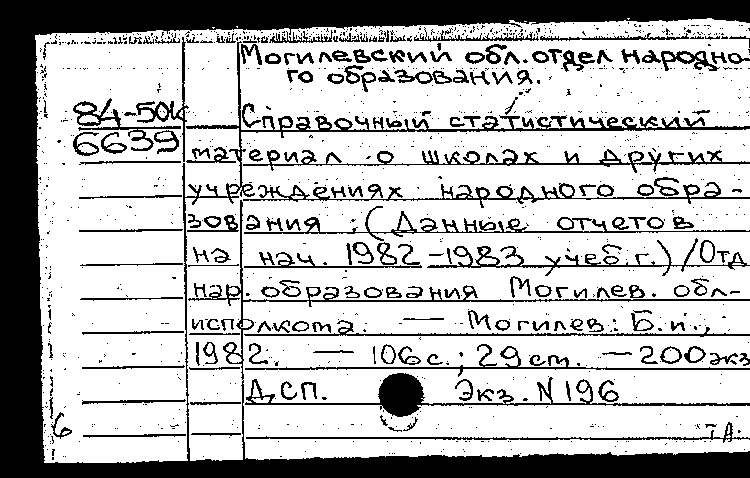 Могилевский обл. отдел народно-
го образования.
84-50к
6639
Справочный статистический
материал о школах и других
учреждениях народного обра-
зования : (Данные отчетов
на нач. 1982-1983 учеб.г.) /Отд
нар. образования Могилев. обл-
исполкома. — Могилев: Б.и.,
1982. — 106 с.; 29 см. — 200 экз
ДСП. Экз. N 196
6